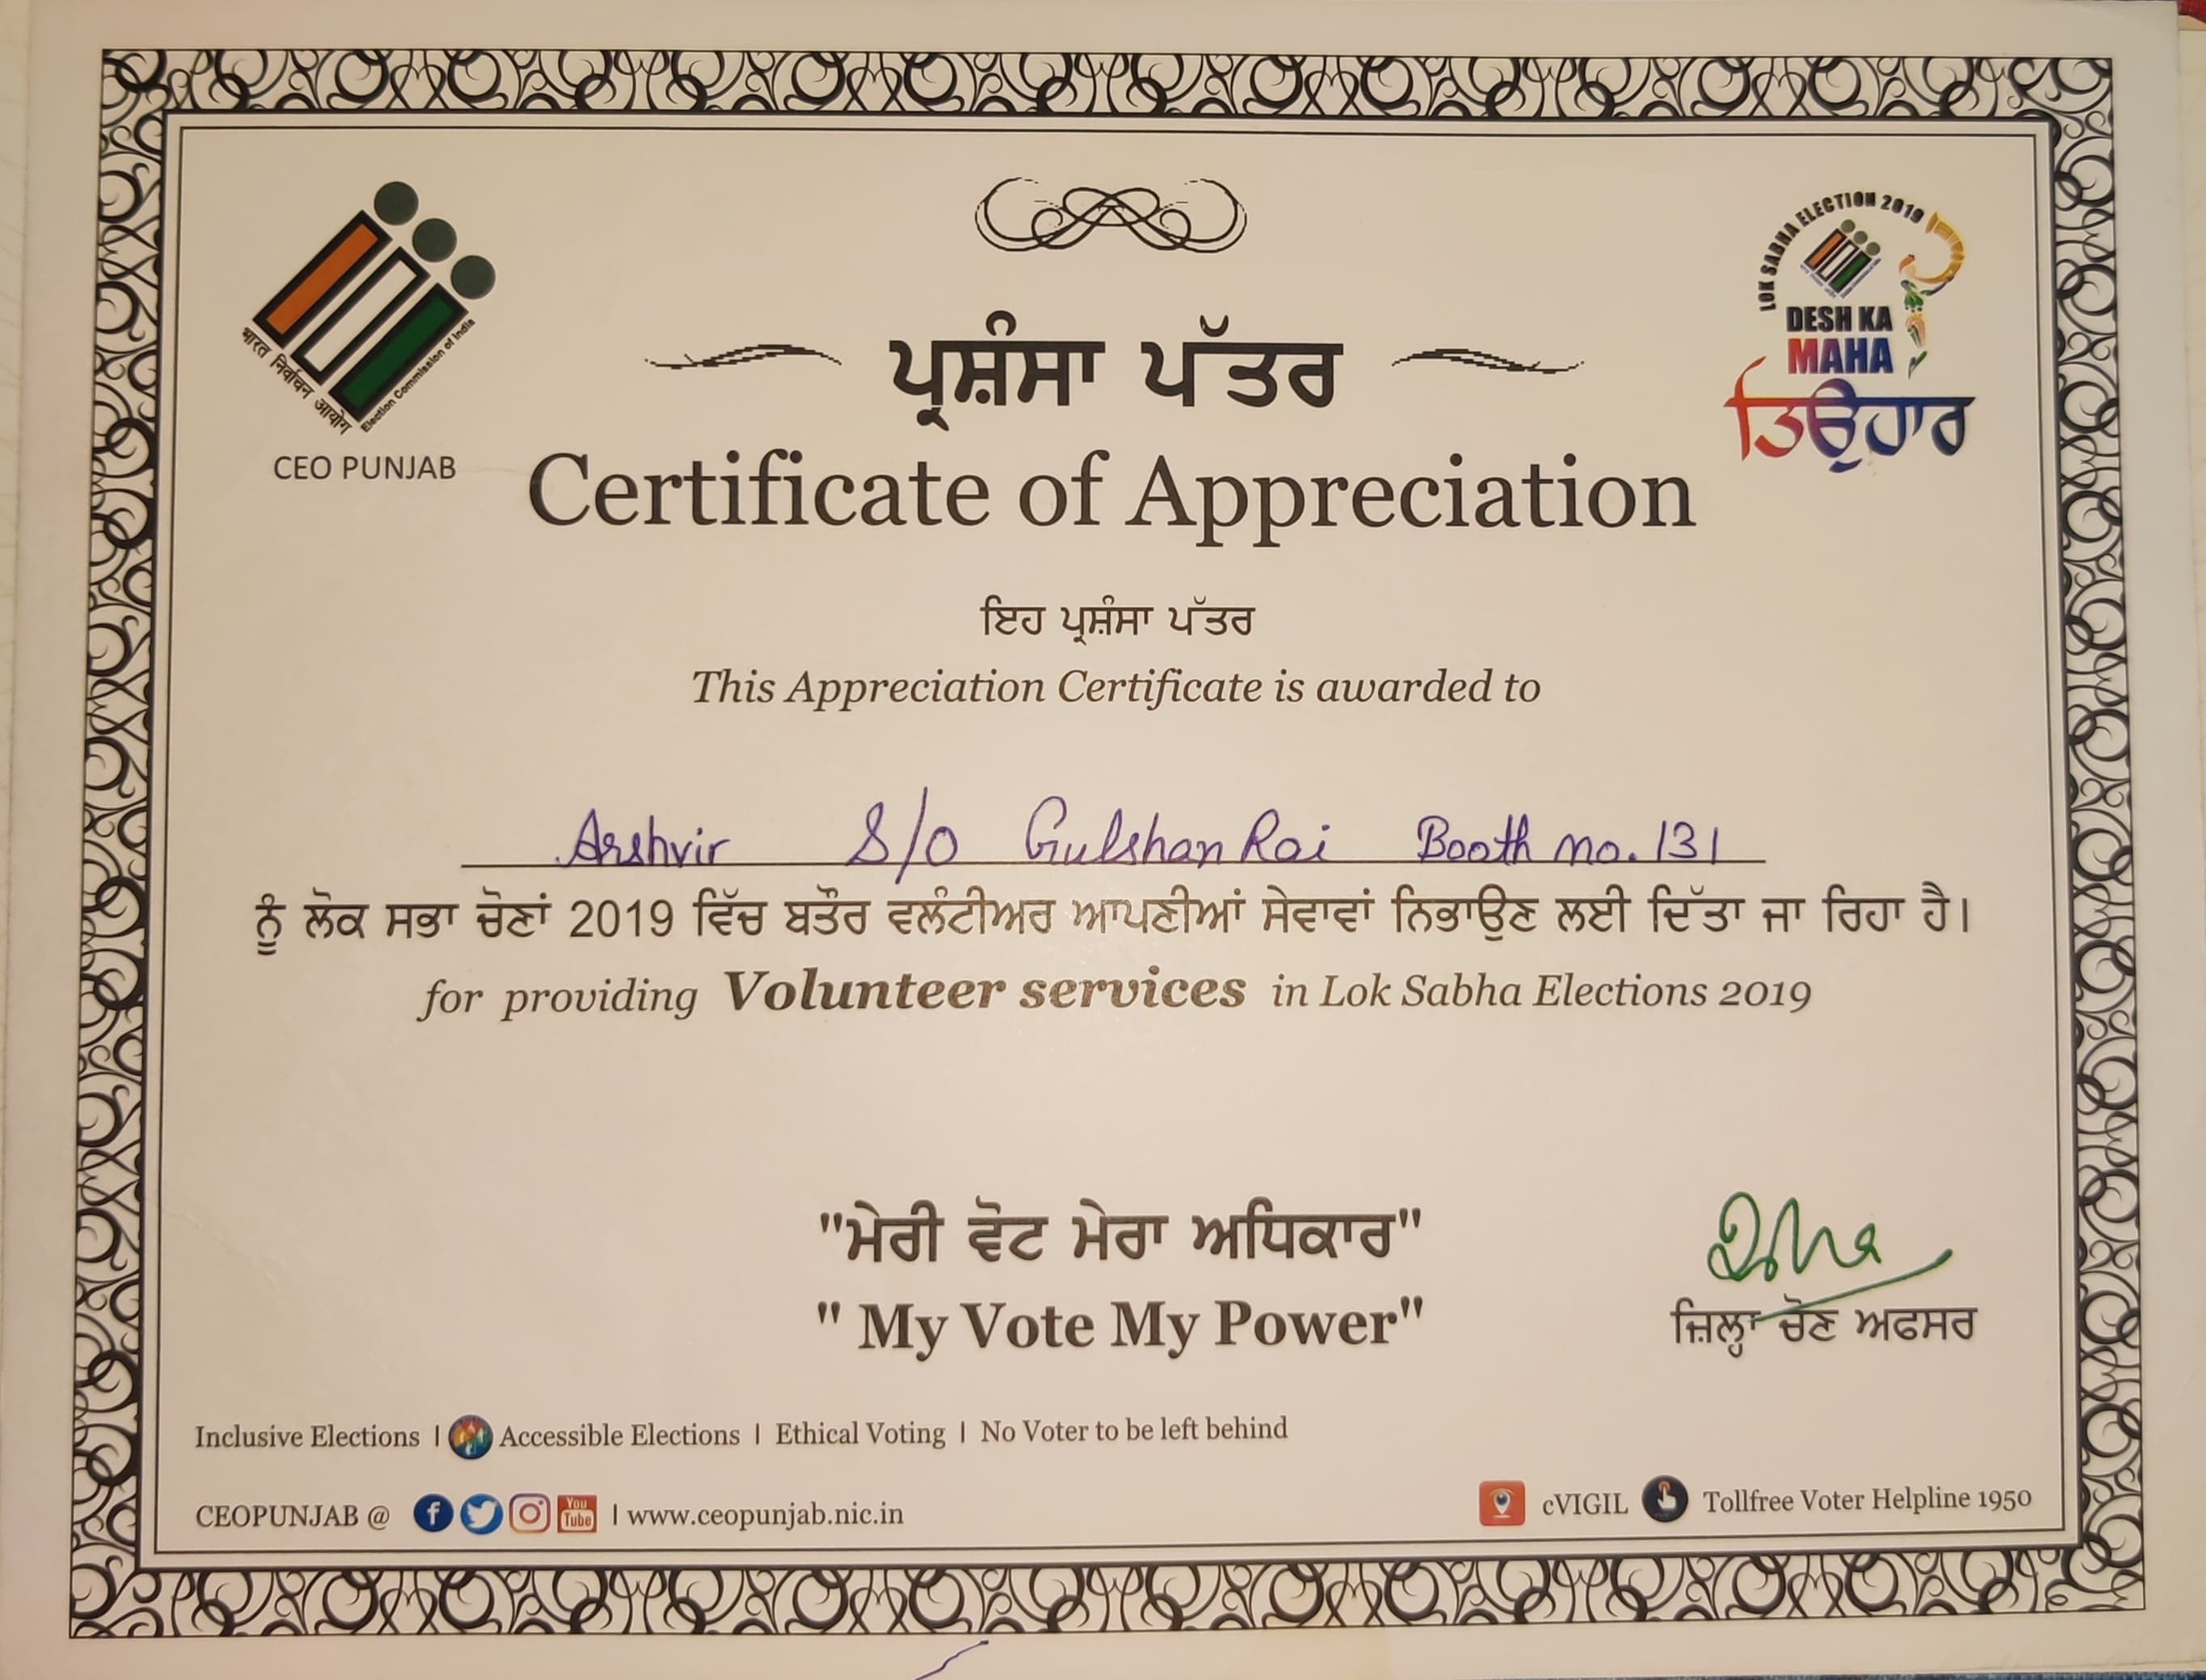 भारत निर्वाचन आयोग
Election Commission of India
CEO PUNJAB
LOK SABHA ELECTION 2019
DESH KA
MAHA
ਤਿਉਹਾਰ
ਪ੍ਰਸ਼ੰਸਾ ਪੱਤਰ
Certificate of Appreciation
ਇਹ ਪ੍ਰਸ਼ੰਸਾ ਪੱਤਰ
This Appreciation Certificate is awarded to
Arshvir S/O Gulshan Rai Booth no. 131
ਨੂੰ ਲੋਕ ਸਭਾ ਚੋਣਾਂ 2019 ਵਿੱਚ ਬਤੌਰ ਵਲੰਟੀਅਰ ਆਪਣੀਆਂ ਸੇਵਾਵਾਂ ਨਿਭਾਉਣ ਲਈ ਦਿੱਤਾ ਜਾ ਰਿਹਾ ਹੈ।
for providing Volunteer services in Lok Sabha Elections 2019
"ਮੇਰੀ ਵੋਟ ਮੇਰਾ ਅਧਿਕਾਰ"
" My Vote My Power"
ਜ਼ਿਲ੍ਹਾ ਚੋਣ ਅਫਸਰ
Inclusive Elections | Accessible Elections | Ethical Voting | No Voter to be left behind
CEOPUNJAB @ You Tube | www.ceopunjab.nic.in
cVIGIL Tollfree Voter Helpline 1950